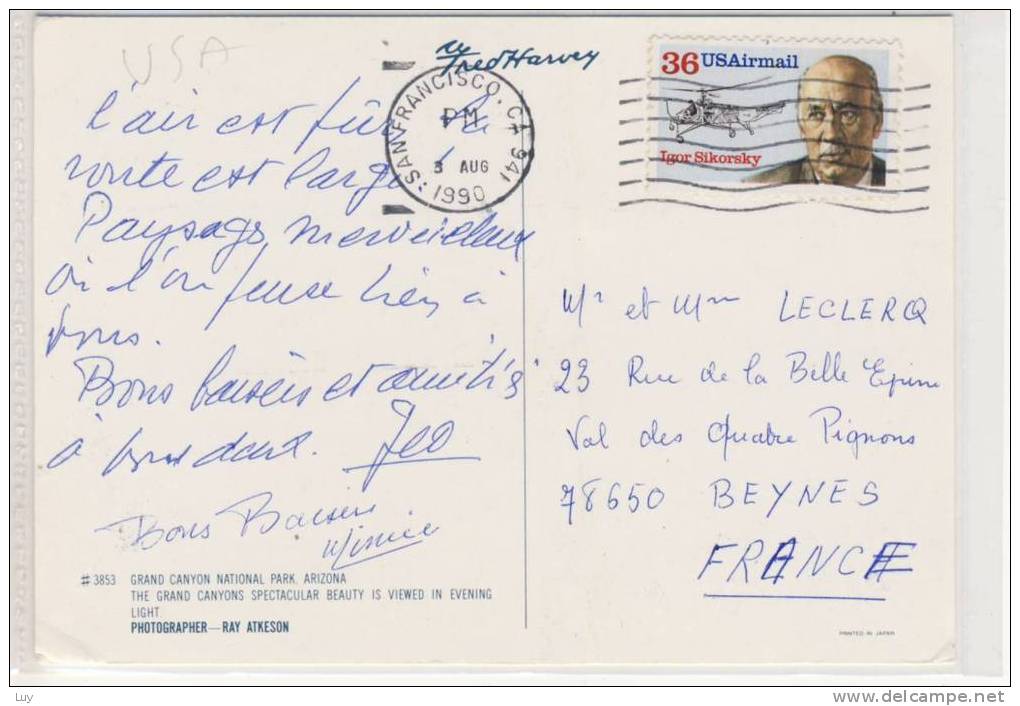 USA
by Fred Harvey
SAN FRANCISCO, CA 941
PM
3 AUG
1990
36 USAirmail
Igor Sikorsky
l'air est pur la
route est large
Paysage merveilleux
où l'on pense bien à
vous.
Bons baisers et amitiés
à vous deux. Jeo
Bons Baisers
Mr et Mme LECLERQ
23 Rue de la Belle Epine
Val des Quatre Pignons
78650 BEYNES
FRANCE
#3853 GRAND CANYON NATIONAL PARK, ARIZONA
THE GRAND CANYONS SPECTACULAR BEAUTY IS VIEWED IN EVENING
LIGHT
PHOTOGRAPHER—RAY ATKESON
PRINTED IN JAPAN
Luy
www.delcampe.net